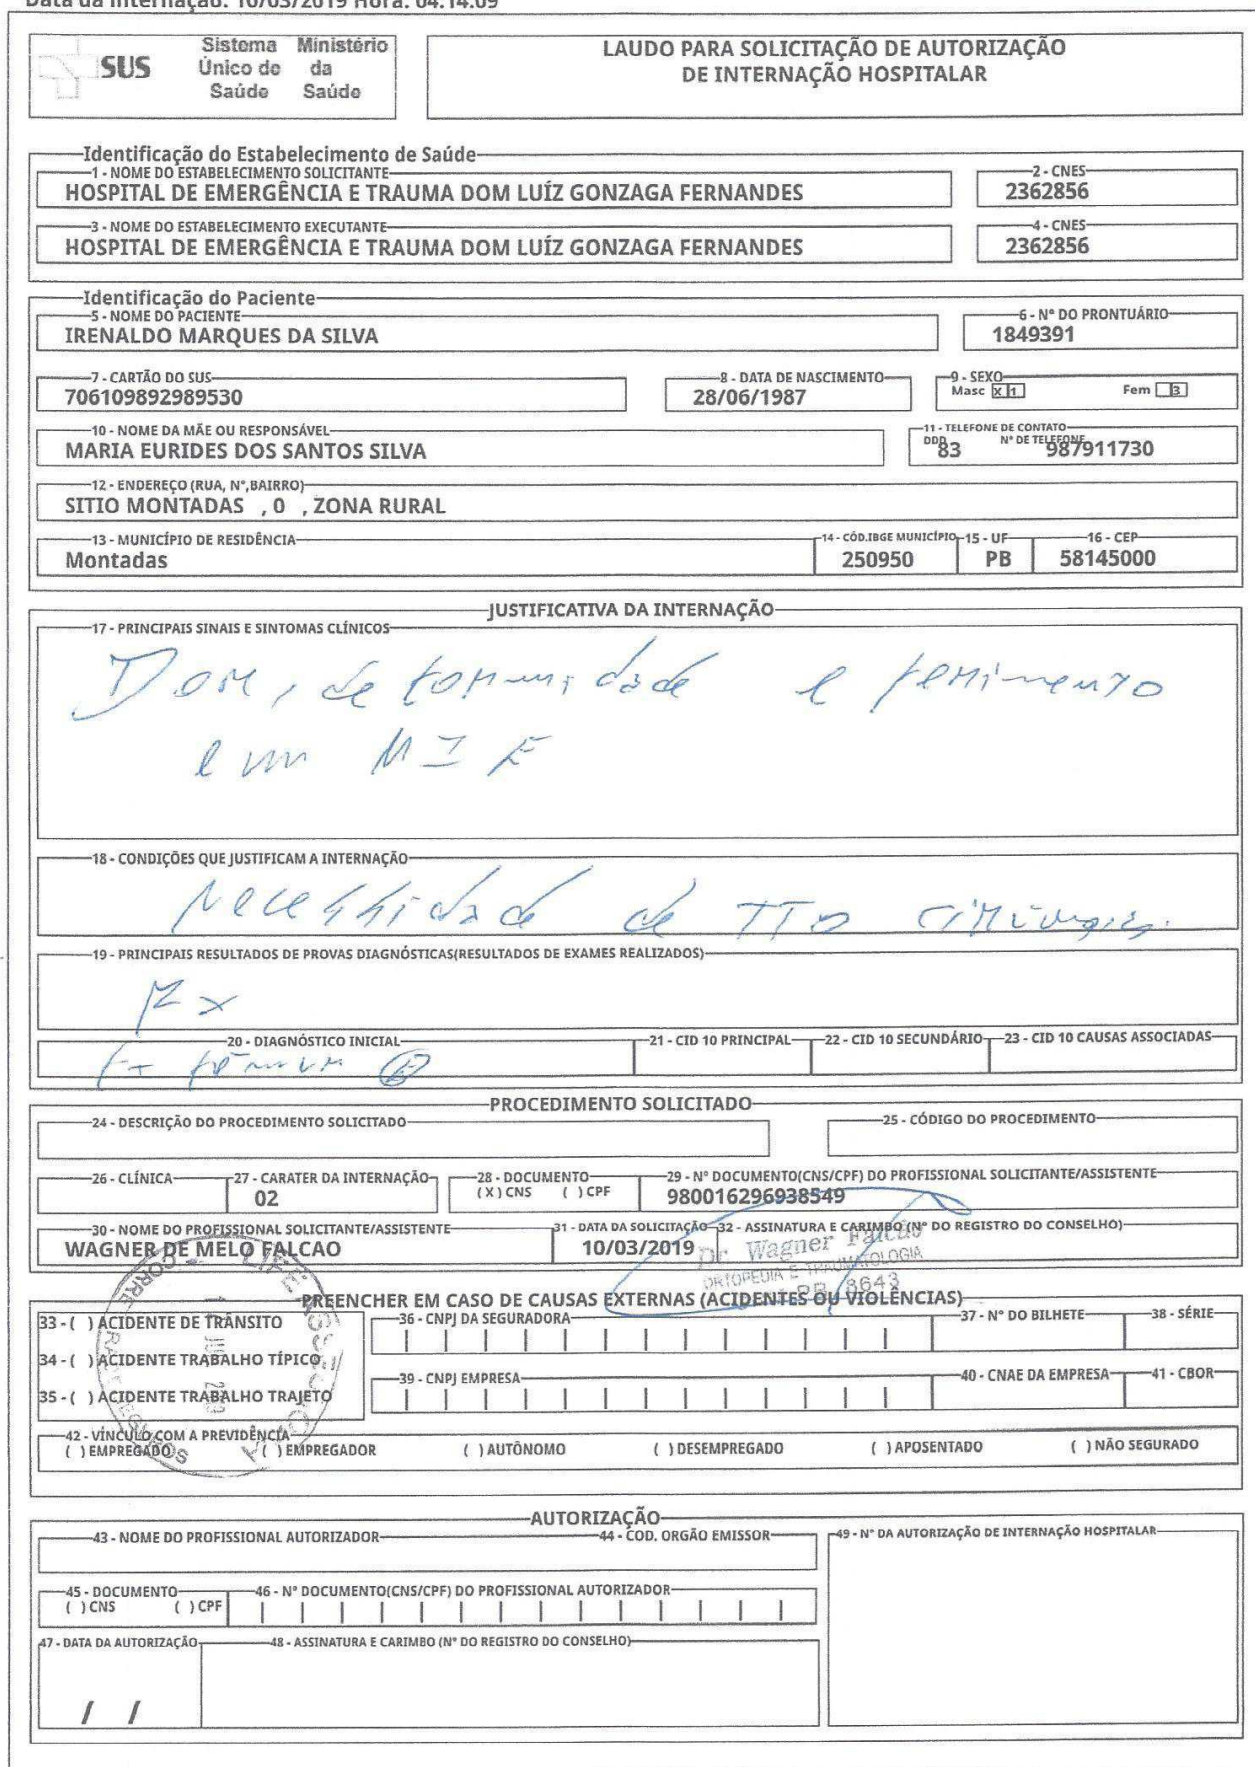 Data da Internação: 10/03/2019 Hora: 04:14:09
SUS
Sistema Único de Saúde
Ministério da Saúde
LAUDO PARA SOLICITAÇÃO DE AUTORIZAÇÃO
DE INTERNAÇÃO HOSPITALAR
Identificação do Estabelecimento de Saúde
1 - NOME DO ESTABELECIMENTO SOLICITANTE
2 - CNES
HOSPITAL DE EMERGÊNCIA E TRAUMA DOM LUÍZ GONZAGA FERNANDES
2362856
3 - NOME DO ESTABELECIMENTO EXECUTANTE
4 - CNES
HOSPITAL DE EMERGÊNCIA E TRAUMA DOM LUÍZ GONZAGA FERNANDES
2362856
Identificação do Paciente
5 - NOME DO PACIENTE
6 - N° DO PRONTUÁRIO
IRENALDO MARQUES DA SILVA
1849391
7 - CARTÃO DO SUS
8 - DATA DE NASCIMENTO
9 - SEXO
706109892989530
28/06/1987
Masc X 1 Fem 3
10 - NOME DA MÃE OU RESPONSÁVEL
11 - TELEFONE DE CONTATO
MARIA EURIDES DOS SANTOS SILVA
DDD 83 N° DE TELEFONE 987911730
12 - ENDEREÇO (RUA, N°,BAIRRO)
SITIO MONTADAS , 0 , ZONA RURAL
13 - MUNICÍPIO DE RESIDÊNCIA
14 - CÓD.IBGE MUNICÍPIO
15 - UF
16 - CEP
Montadas
250950
PB
58145000
JUSTIFICATIVA DA INTERNAÇÃO
17 - PRINCIPAIS SINAIS E SINTOMAS CLÍNICOS
Dor, deformidade e ferimento
em MIE
18 - CONDIÇÕES QUE JUSTIFICAM A INTERNAÇÃO
Necessidade de TTO cirúrgico.
19 - PRINCIPAIS RESULTADOS DE PROVAS DIAGNÓSTICAS(RESULTADOS DE EXAMES REALIZADOS)
Rx
20 - DIAGNÓSTICO INICIAL
21 - CID 10 PRINCIPAL
22 - CID 10 SECUNDÁRIO
23 - CID 10 CAUSAS ASSOCIADAS
fêmur E
PROCEDIMENTO SOLICITADO
24 - DESCRIÇÃO DO PROCEDIMENTO SOLICITADO
25 - CÓDIGO DO PROCEDIMENTO
26 - CLÍNICA
27 - CARATER DA INTERNAÇÃO
28 - DOCUMENTO
29 - N° DOCUMENTO(CNS/CPF) DO PROFISSIONAL SOLICITANTE/ASSISTENTE
02
( X ) CNS ( ) CPF
980016296938549
30 - NOME DO PROFISSIONAL SOLICITANTE/ASSISTENTE
31 - DATA DA SOLICITAÇÃO
32 - ASSINATURA E CARIMBO (N° DO REGISTRO DO CONSELHO)
WAGNER DE MELO FALCAO
10/03/2019
Dr. Wagner Falcão
ORTOPEDIA E TRAUMATOLOGIA
8643
PREENCHER EM CASO DE CAUSAS EXTERNAS (ACIDENTES OU VIOLÊNCIAS)
33 - ( ) ACIDENTE DE TRÂNSITO
36 - CNPJ DA SEGURADORA
37 - N° DO BILHETE
38 - SÉRIE
34 - ( ) ACIDENTE TRABALHO TÍPICO
35 - ( ) ACIDENTE TRABALHO TRAJETO
39 - CNPJ EMPRESA
40 - CNAE DA EMPRESA
41 - CBOR
42 - VÍNCULO COM A PREVIDÊNCIA
( ) EMPREGADO ( ) EMPREGADOR ( ) AUTÔNOMO ( ) DESEMPREGADO ( ) APOSENTADO ( ) NÃO SEGURADO
AUTORIZAÇÃO
43 - NOME DO PROFISSIONAL AUTORIZADOR
44 - COD. ORGÃO EMISSOR
49 - N° DA AUTORIZAÇÃO DE INTERNAÇÃO HOSPITALAR
45 - DOCUMENTO
46 - N° DOCUMENTO(CNS/CPF) DO PROFISSIONAL AUTORIZADOR
( ) CNS ( ) CPF
47 - DATA DA AUTORIZAÇÃO
48 - ASSINATURA E CARIMBO (N° DO REGISTRO DO CONSELHO)
/ /